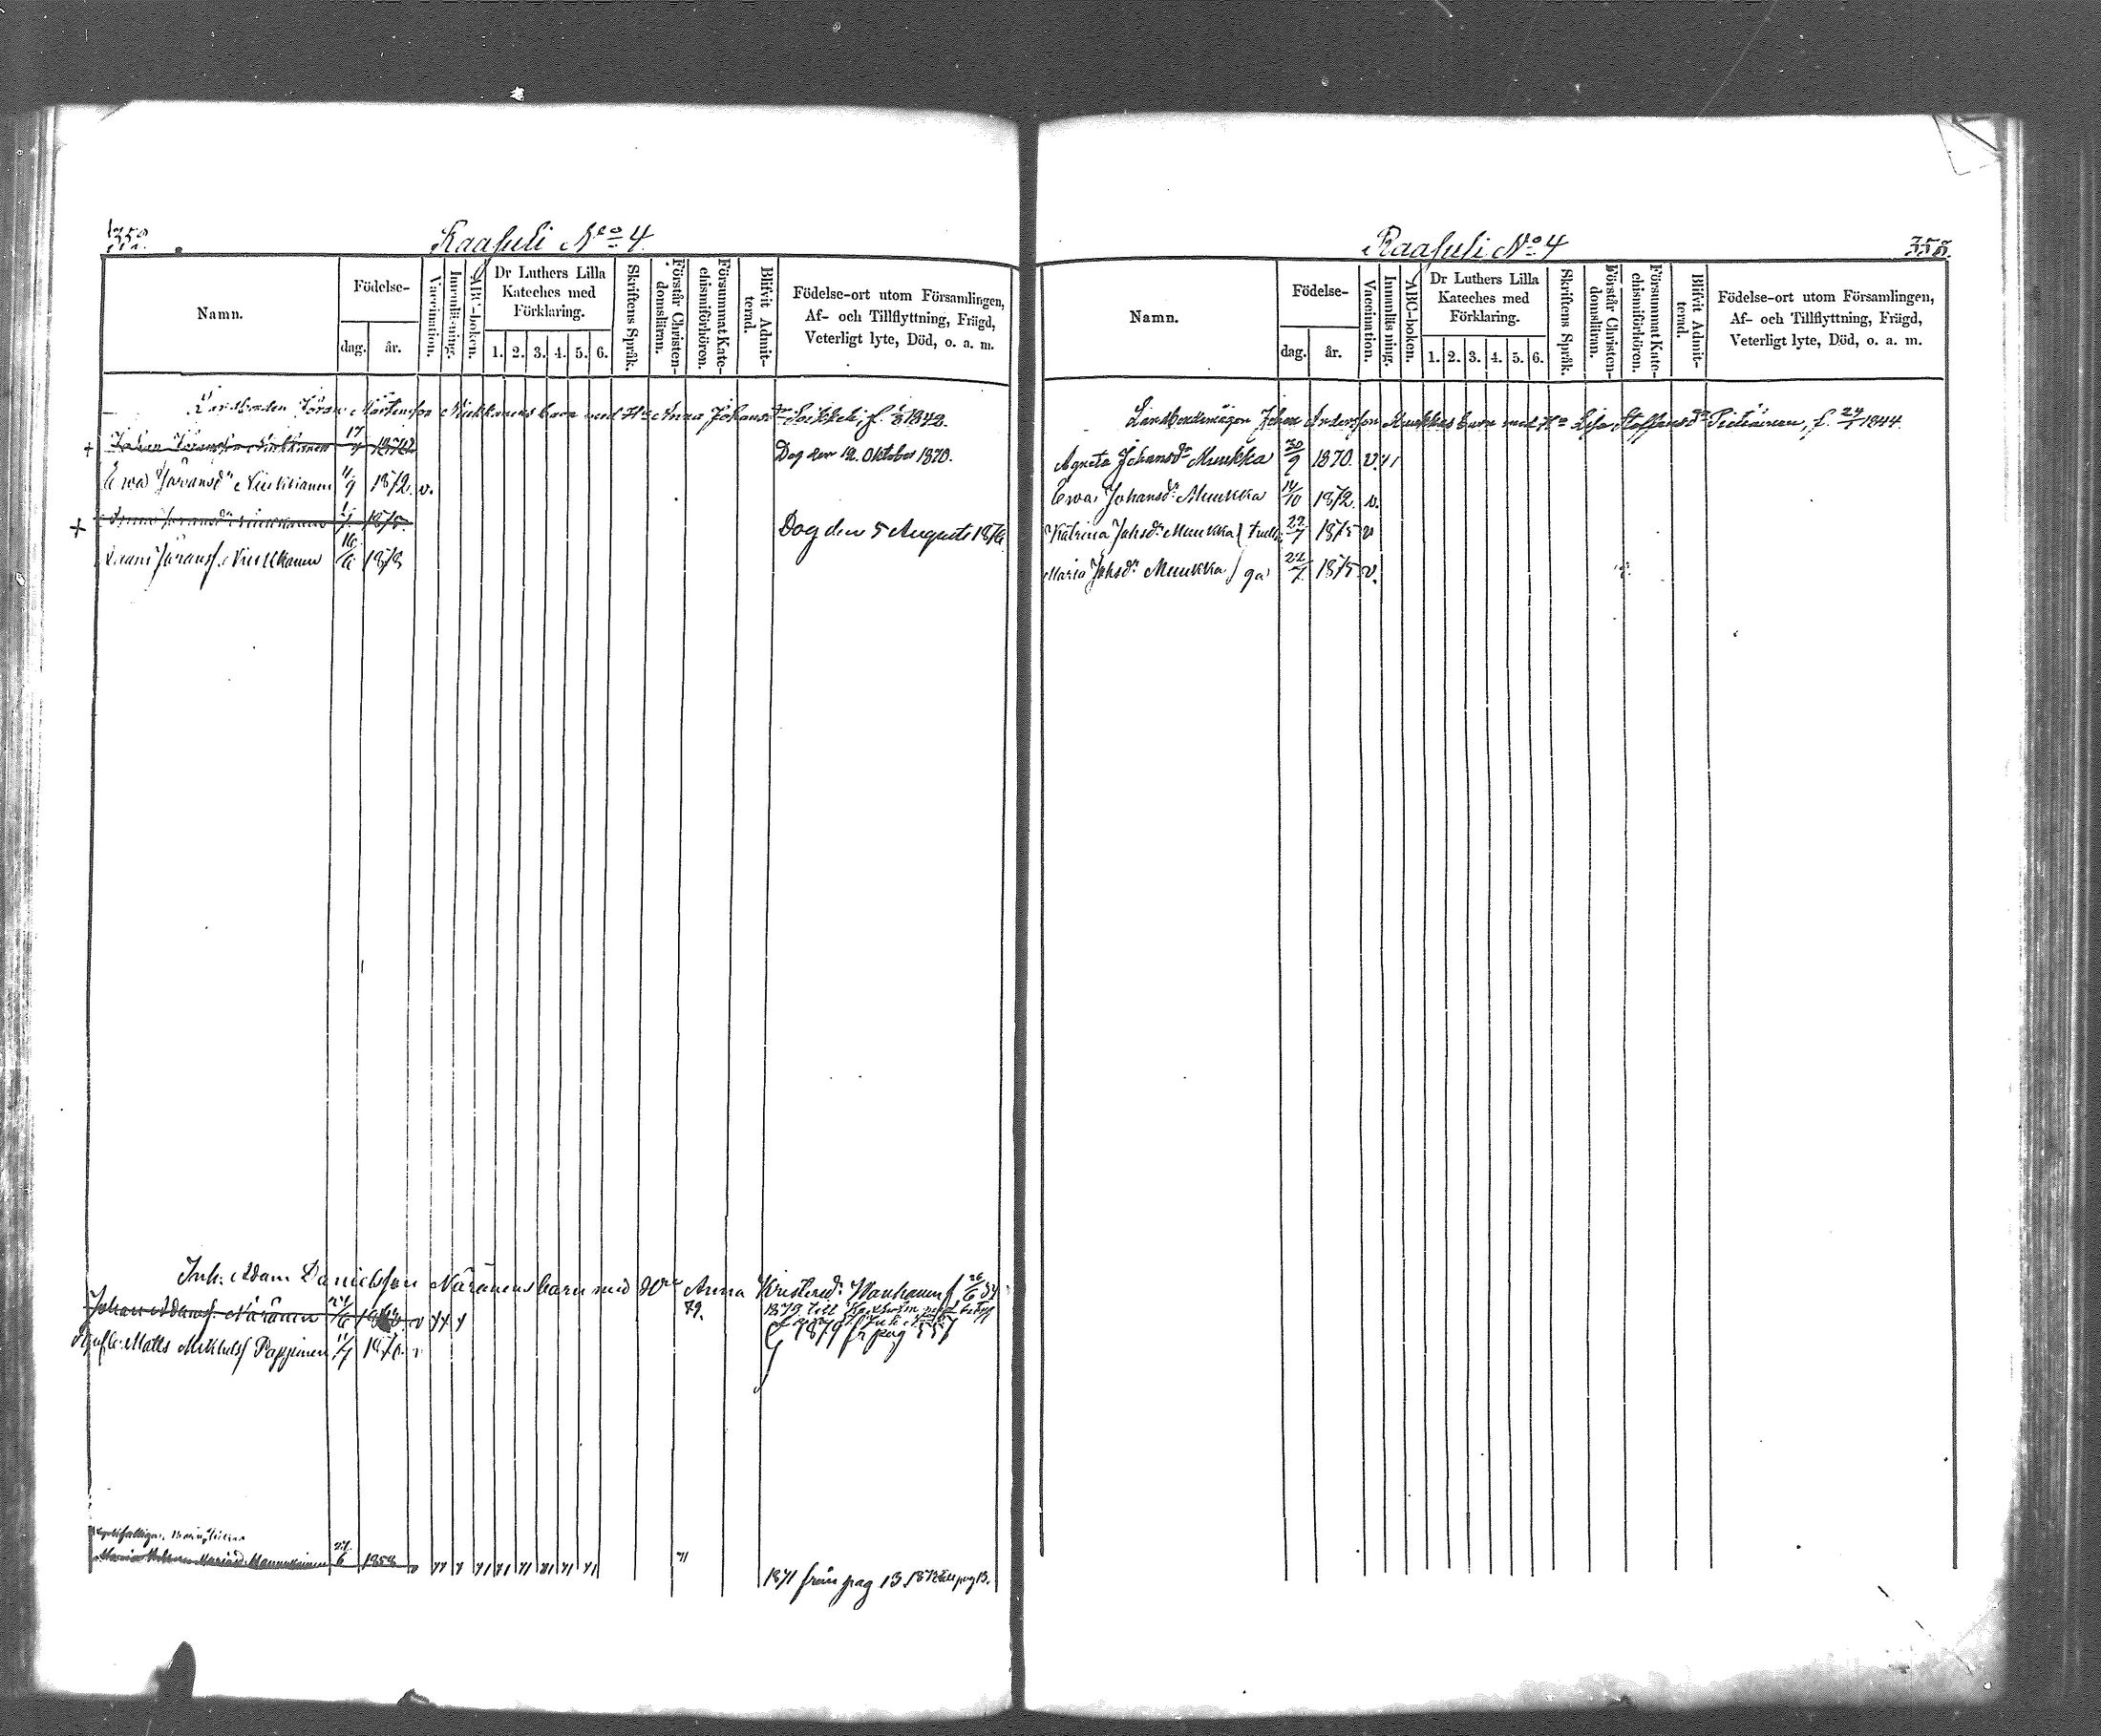 358
Raasuli No 4
Namn.
Födelse-
dag.
år.
Vaccination.
Innanläsning.
ABC-boken.
Dr Luthers Lilla
Kateches med
Förklaring.
1. 2. 3. 4. 5. 6.
Skriftens Språk.
Förstår Christen-
domsläran.
Försummat Kate-
chismiförhören.
Blifvit Admit-
terad.
Födelse-ort utom Församlingen,
Af- och Tillflyttning, Frägd,
Veterligt lyte, Död, o. a. m.
Landbonden Jöran Mårtensson Niukkanens barn med Hu Anna Johansdr f. 1842.
+ Johan Jöransson Niukkanen 17 Dog den 12. Oktober 1870.
Ewa Jöransdr Niukkanen 11/9 1872. v.
+ Anna Jöransdr Niukkanen 1875. Dog den 5 Augusti 1876
Jöranss. Niukkanen 16/6 1878
Inh. Adam Danielsson Näränens barn med Anna Kristersdr Vanhanen f 26/6
Johan Adamss. Näränen v 79. 1879 till
1879 fr pag 557
Matts Mikkelss Pappinen 11/7 v
Maria 27/6 1858
1871 från pag 13. 1872 till pag 13.
Raasuli No 4
358.
Namn.
Födelse-
dag.
år.
Vaccination.
Innanläsning.
ABC-boken.
Dr Luthers Lilla
Kateches med
Förklaring.
1. 2. 3. 4. 5. 6.
Skriftens Språk.
Förstår Christen-
domsläran.
Försummat Kate-
chismiförhören.
Blifvit Admit-
terad.
Födelse-ort utom Församlingen,
Af- och Tillflyttning, Frägd,
Veterligt lyte, Död, o. a. m.
Landbondemågen Johan Andersson Muukkas barn med Hu Lisa Staffansdr Pietiäinen, f. 24 1844.
Agneta Johansdr Muukka 30/9 1870. v.
Ewa Johansdr Muukka 14/10 1872. v.
Katrina Johsdr Muukka 22/7 1875 v
Maria Johsdr Muukka 22/7 1875 v.